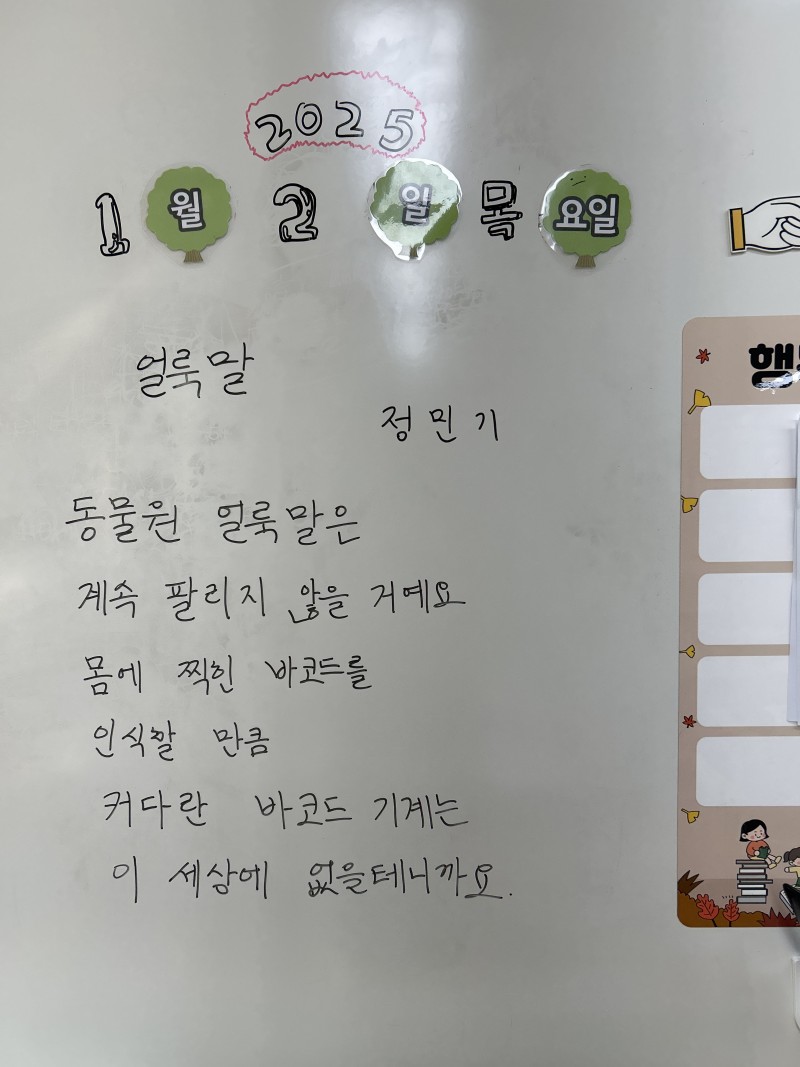 2025
1 월 2 일 목 요일
얼룩말
정민기
동물원 얼룩말은
계속 팔리지 않을 거예요
몸에 찍힌 바코드를
인식할 만큼
커다란 바코드 기계는
이 세상에 없을테니까요.
행